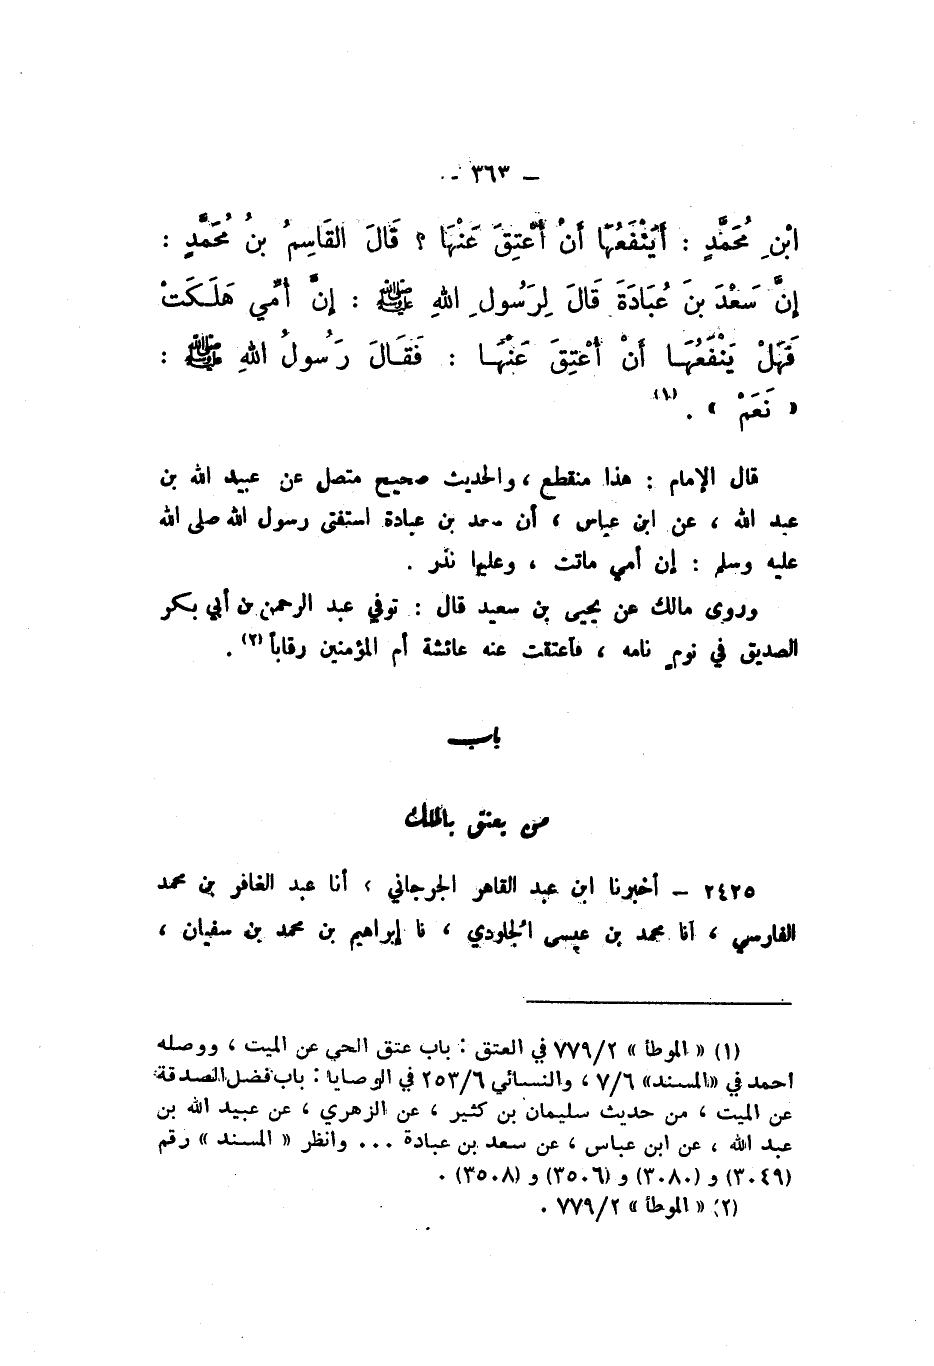 – ٣٦٣ –
ابْنِ مُحَمَّدٍ : أَيَنْفَعُهَا أَنْ أُعْتِقَ عَنْهَا ؟ قَالَ القَاسِمُ بنُ مُحَمَّدٍ :
إِنَّ سَعْدَ بنَ عُبَادَةَ قَالَ لِرَسُولِ اللهِ ﷺ : إِنَّ أُمِّي هَلَكَتْ
فَهَلْ يَنْفَعُهَا أَنْ أُعْتِقَ عَنْهَا : فَقَالَ رَسُولُ اللهِ ﷺ :
« نَعَمْ » . (١)
قال الإمام : هذا منقطع ، والحديث صحيح متصل عن عبيد الله بن
عبد الله ، عن ابن عباس ، أن سعد بن عبادة استفتى رسول الله صلى الله
عليه وسلم : إن أمي ماتت ، وعليها نذر .
وروى مالك عن يحيى بن سعيد قال : توفي عبد الرحمن بن أبي بكر
الصديق في نومٍ نامه ، فأعتقت عنه عائشة أم المؤمنين رقاباً (٢) .
باب
من يعتق بالملك
٢٤٢٥ – أخبرنا ابن عبد القاهر الجرجاني ، أنا عبد الغافر بن محمد
الفارسي ، أنا محمد بن عيسى الجلودي ، نا إبراهيم بن محمد بن سفيان ،
(١) « الموطأ » ٧٧٩/٢ في العتق : باب عتق الحي عن الميت ، ووصله
أحمد في «المسند» ٧/٦ ، والنسائي ٢٥٣/٦ في الوصايا : باب فضل الصدقة
عن الميت ، من حديث سليمان بن كثير ، عن الزهري ، عن عبيد الله بن
عبد الله ، عن ابن عباس ، عن سعد بن عبادة ... وانظر « المسند » رقم
(٣٠٤٩) و (٣٠٨٠) و (٣٥٠٦) و (٣٥٠٨) .
(٢) « الموطأ » ٧٧٩/٢ .